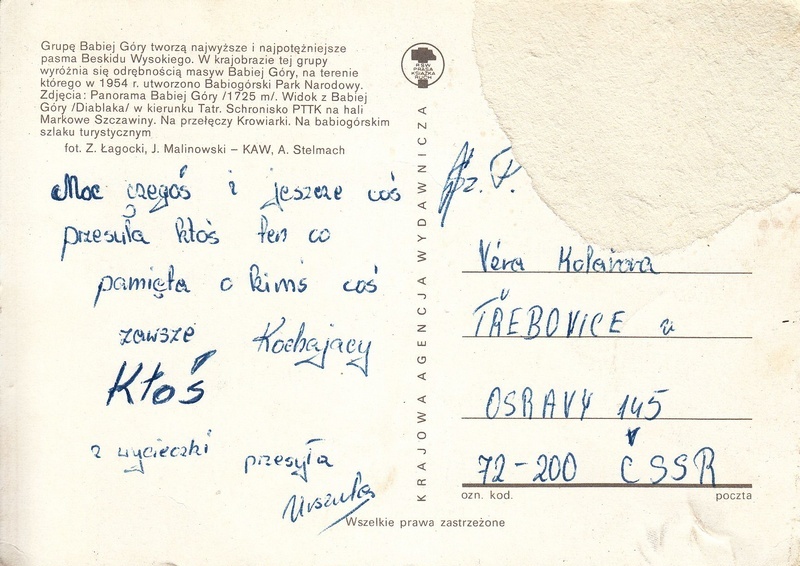 Grupę Babiej Góry tworzą najwyższe i najpotężniejsze
pasma Beskidu Wysokiego. W krajobrazie tej grupy
wyróżnia się odrębnością masyw Babiej Góry, na terenie
którego w 1954 r. utworzono Babiogórski Park Narodowy.
Zdjęcia: Panorama Babiej Góry /1725 m/. Widok z Babiej
Góry /Diablaka/ w kierunku Tatr. Schronisko PTTK na hali
Markowe Szczawiny. Na przełęczy Krowiarki. Na babiogórskim
szlaku turystycznym
fot. Z. Łagocki, J. Malinowski – KAW, A. Stelmach
Moc czegoś i jeszcze coś
przesyła ktoś ten co
pamięta o kimś coś
zawsze Kochający
Ktoś
z wycieczki przesyła
Urszula
KRAJOWA AGENCJA WYDAWNICZA
RSW
PRASA
KSIĄŻKA
RUCH
Věra Kolařova
TŘEBOVICE u
OSRAVY 145
72-200 ČSSR
ozn. kod. poczta
Wszelkie prawa zastrzeżone